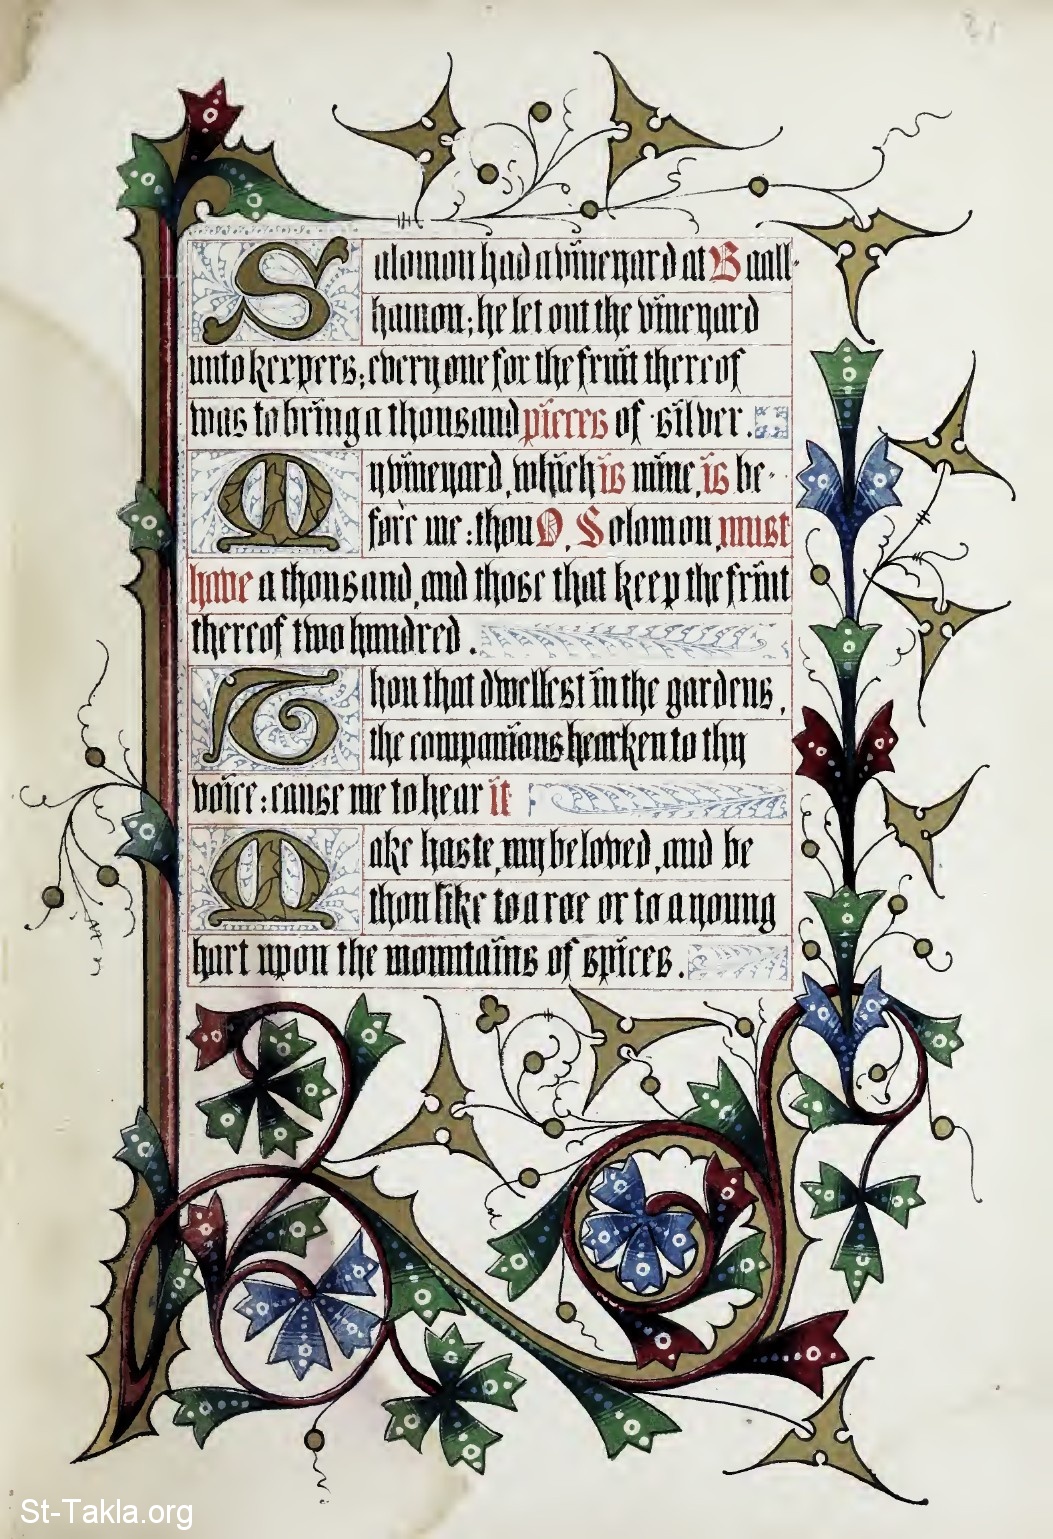 Salomon had a vineyard at Baal-
hamon; he let out the vineyard
unto keepers; every one for the fruit thereof
was to bring a thousand pieces of silver.
My vineyard, which is mine, is be-
fore me: thou O, Solomon, must
have a thousand, and those that keep the fruit
thereof two hundred.
Thou that dwellest in the gardens,
the companions hearken to thy
voice: cause me to hear it
Make haste, my beloved, and be
thou like to a roe or to a young
hart upon the mountains of spices.
St-Takla.org